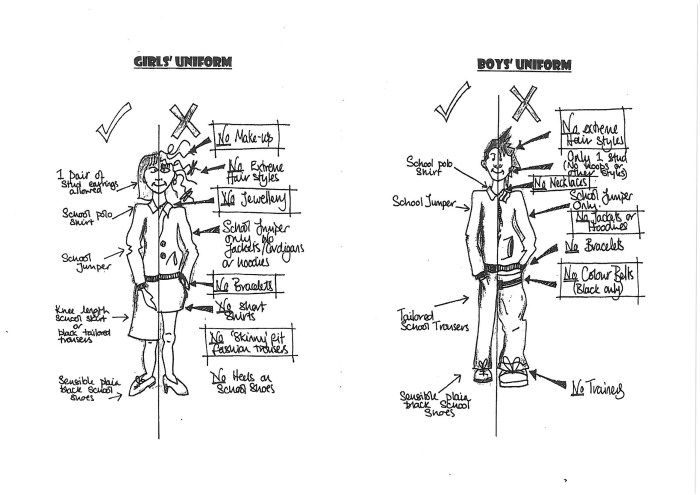 GIRLS' UNIFORM
1 pair of
stud earrings
allowed
School polo
shirt
School
Jumper
Knee length
School skirt
or
black tailored
trousers
Sensible plain
black School
Shoes
No Make-up
No Extreme
Hair styles
No Jewellery
School Jumper
only No
Jackets/Cardigans
or hoodies
No Bracelets
No Short
Skirts
No 'Skinny' Fit
fashion trousers
No Heels on
School Shoes
BOYS' UNIFORM
School polo
Shirt
School Jumper
Tailored
School Trousers
Sensible plain
black School
Shoes
No extreme
Hair Styles
Only 1 Stud
(No hoops or
other styles)
No Necklaces
School Jumper
Only.
No Jackets or
Hoodies
No Bracelets
No Colour Belts
(Black only)
No Trainers